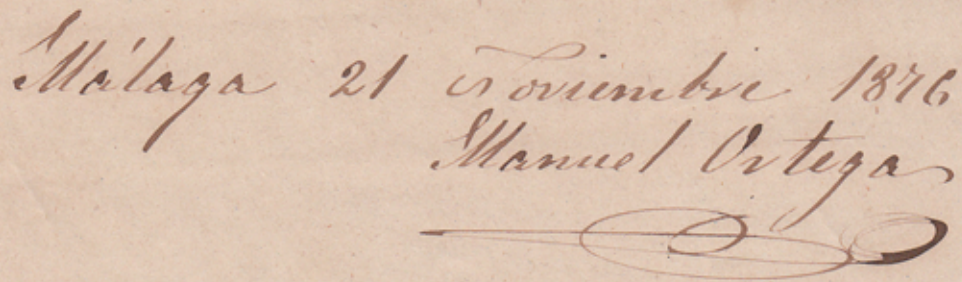 Málaga 21 Noviembre 1876
Manuel Ortega